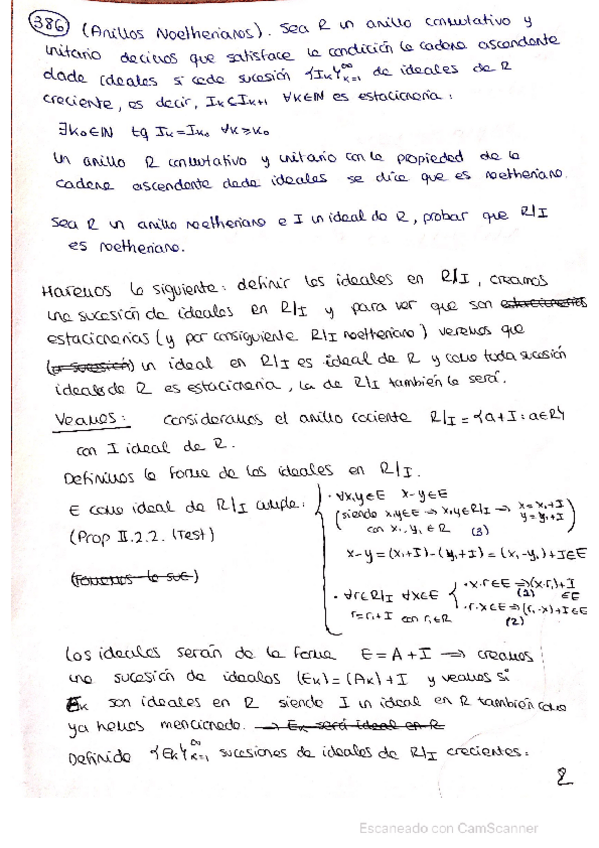 386 (Anillos Noetherianos). Sea R un anillo conmutativo y
unitario decimos que satisface la condición la cadena ascendente
dada ideales si cada sucesión {Iₖ}ₖ₌₁^∞ de ideales de R
creciente, es decir, Iₖ⊂Iₖ₊₁ ∀k∈ℕ es estacionaria:
∃k₀∈ℕ tq Iₖ=Iₖ₀ ∀k≥k₀
Un anillo R conmutativo y unitario con la propiedad de la
cadena ascendente dada ideales se dice que es noetheriano.
Sea R un anillo noetheriano e I un ideal de R, probar que R/I
es noetheriano.
Haremos lo siguiente: definir los ideales en R/I, creamos
una sucesión de ideales en R/I y para ver que son estacionarias
estacionarias (y por consiguiente R/I noetheriano) veremos que
un ideal en R/I es ideal de R y como toda sucesión
ideales de R es estacionaria, la de R/I también lo será.
Veamos: Consideramos el anillo cociente R/I = {a+I : a∈R}
con I ideal de R.
Definimos la forma de los ideales en R/I.
E como ideal de R/I cumple:
(Prop II.2.2. (Test)
· ∀x,y∈E x-y∈E
(siendo x,y∈E → x,y∈R/I → x=x₁+I
y=y₁+I)
con x₁,y₁∈R (3)
x-y=(x₁+I)-(y₁+I)=(x₁-y₁)+I∈E
· ∀r∈R/I ∀x∈E
r=r₁+I con r₁∈R
· x·r∈E ⇒ (x·r₁)+I ∈E
(2)
· r·x∈E ⇒ (r₁·x)+I∈E
(2)
Los ideales serán de la forma E=A+I → creamos
una sucesión de ideales (Eₖ)=(Aₖ)+I y veamos si
Eₖ son ideales en R siendo I un ideal en R también como
ya hemos mencionado. → Eₖ será ideal en R
Definido {Eₖ}ₖ₌₁^∞ sucesiones de ideales de R/I crecientes:
2
Escaneado con CamScanner